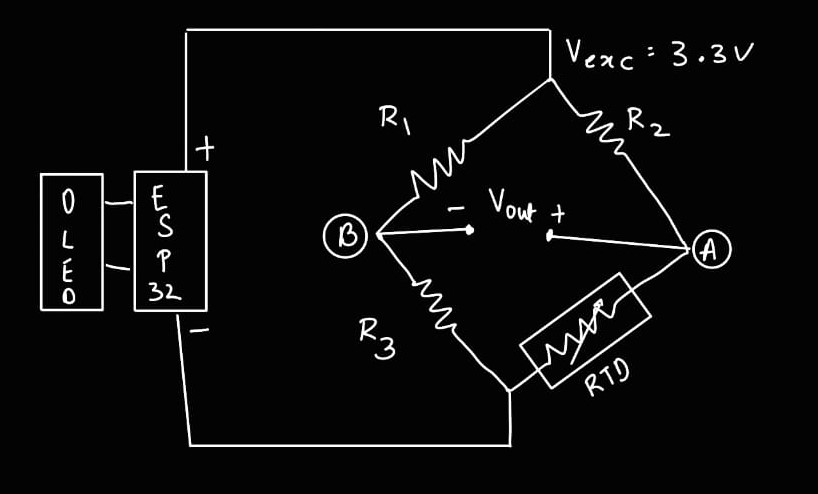 Vexc = 3.3V
R1
R2
+
OLED
ESP
32
- Vout +
B
A
R3
-
RTD